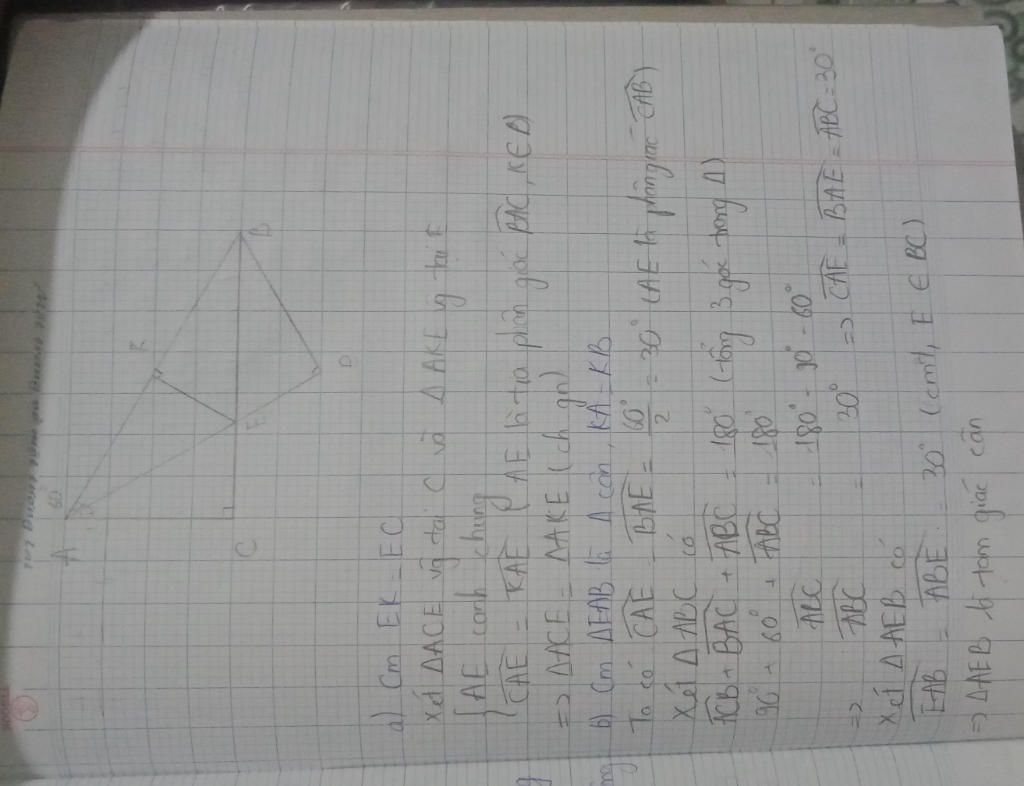 A
60°
K
B
E
C
D
a) Cm EK = EC
Xét ΔACE vg tại C và ΔAKE vg tại K
AE cạnh chung
CAE = KAE (AE là tia phân góc BAC, K∈B)
=> ΔACE = ΔAKE (ch gn)
b) Cm ΔEAB là Δ cân, KA = KB
Ta có CAE = BAE = 60°/2 = 30° (AE là phân giác CAB)
Xét ΔABC có
ACB + BAC + ABC = 180° (tổng 3 góc trong Δ)
90° + 60° + ABC = 180°
ABC = 180° - 90° - 60°
=> ABC = 30° => CAE = BAE = ABC = 30°
Xét ΔAEB có
EAB = ABE = 30° (cmt, E ∈ BC)
=> ΔAEB là tam giác cân